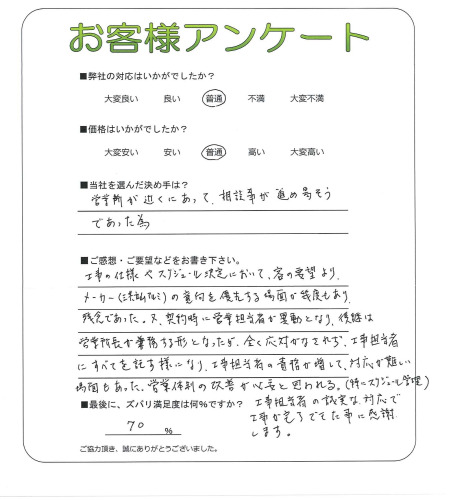 お客様アンケート
■弊社の対応はいかがでしたか？
大変良い 良い 普通 不満 大変不満
■価格はいかがでしたか？
大変安い 安い 普通 高い 大変高い
■当社を選んだ決め手は？
営業所が近くにあって、相談事が進め易そう
であった為
■ご感想・ご要望などをお書き下さい。
工事の仕様やスケジュール決定において、客の要望より、
メーカー(三協アルミ)の意向を優先する場面が幾度もあり、
残念であった。又、契約時に営業担当者が異動となり、後継は
営業所長が兼務する形となったが、全く応対がなされず、工事担当者
にすべてを託す様になり、工事担当者の責務が増して、対応が難しい
場面もあった。営業体制の改善が必要と思われる。(特にスケジュール管理)
■最後に、ズバリ満足度は何%ですか？
70 %
工事担当者の誠実な対応で
工事が完了できた事に感謝
します。
ご協力頂き、誠にありがとうございました。